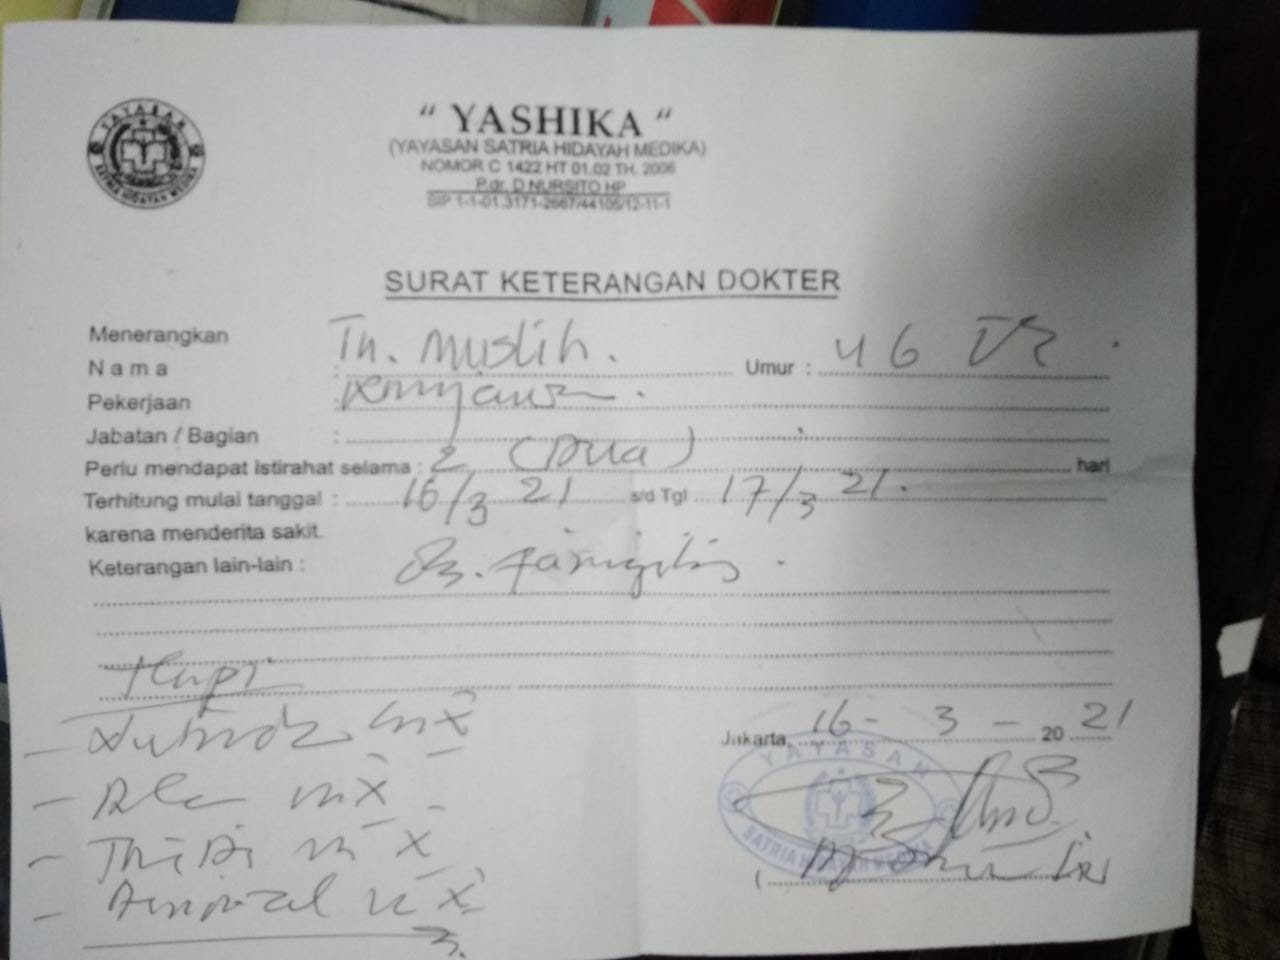 YAYASAN
SATRIA HIDAYAH MEDIKA
" YASHIKA "
(YAYASAN SATRIA HIDAYAH MEDIKA)
NOMOR C 1422 HT 01.02 TH. 2006
P.dr. D NURSITO HP
SIP 1-1-01.3171-2667/44105/12-11-1
SURAT KETERANGAN DOKTER
Menerangkan
Nama : Tn. Muslih. Umur : 46 Th
Pekerjaan : Karyawan.
Jabatan / Bagian :
Perlu mendapat istirahat selama : 2 (Dua) hari
Terhitung mulai tanggal : 16/3 21 s/d Tgl 17/3 21.
karena menderita sakit.
Keterangan lain-lain : faringitis.
Jakarta, 16 - 3 - 20 21
YAYASAN
SATRIA HIDAYAH MEDIKA